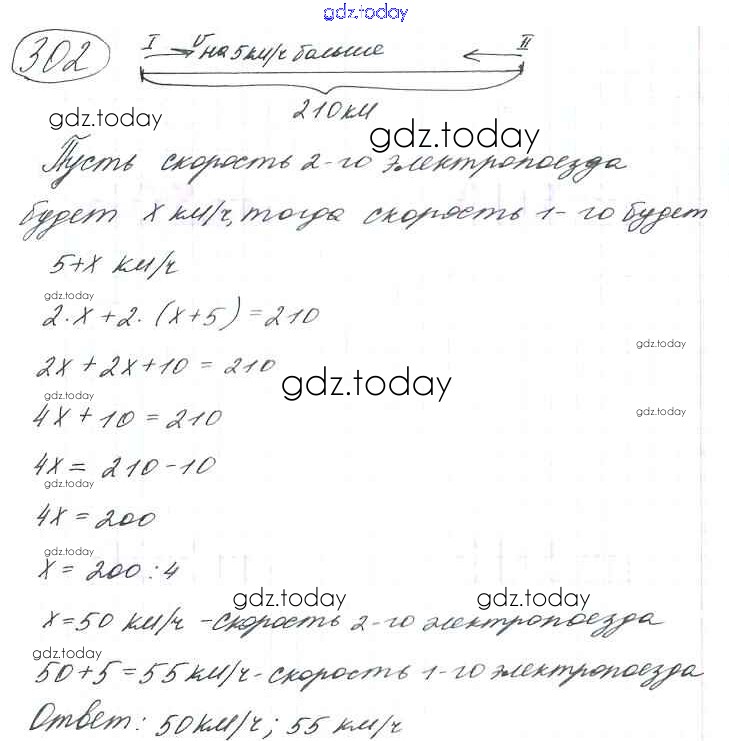 gdz.today
302 I υ на 5 км/ч больше II
210 км
gdz.today gdz.today
Пусть скорость 2-го электропоезда
будет x км/ч, тогда скорость 1-го будет
5+x км/ч
gdz.today
2·x+2·(x+5)=210
gdz.today
2x+2x+10=210
gdz.today
gdz.today gdz.today
4x+10=210
4x=210-10
gdz.today
4x=200
gdz.today
x=200:4
gdz.today gdz.today
x=50 км/ч -скорость 2-го электропоезда
gdz.today
50+5=55 км/ч-скорость 1-го электропоезда
Ответ: 50 км/ч; 55 км/ч